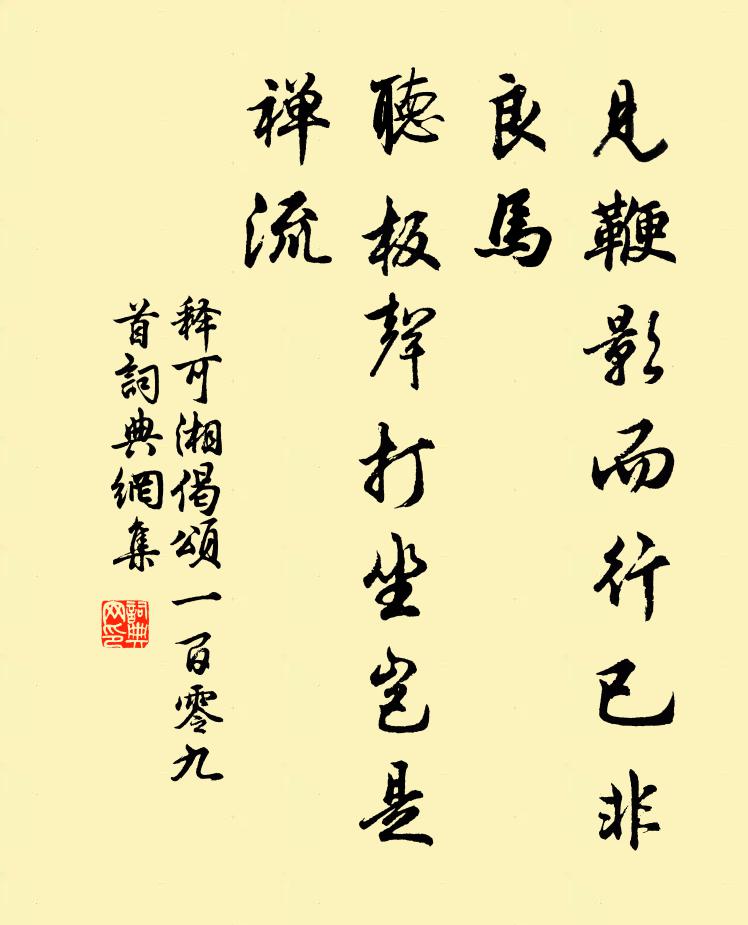 見鞭影而行已非
良馬
聽板聲打坐岂是
禅流
释可湘偈頌一百零九
首詞典網集
詞典
网印